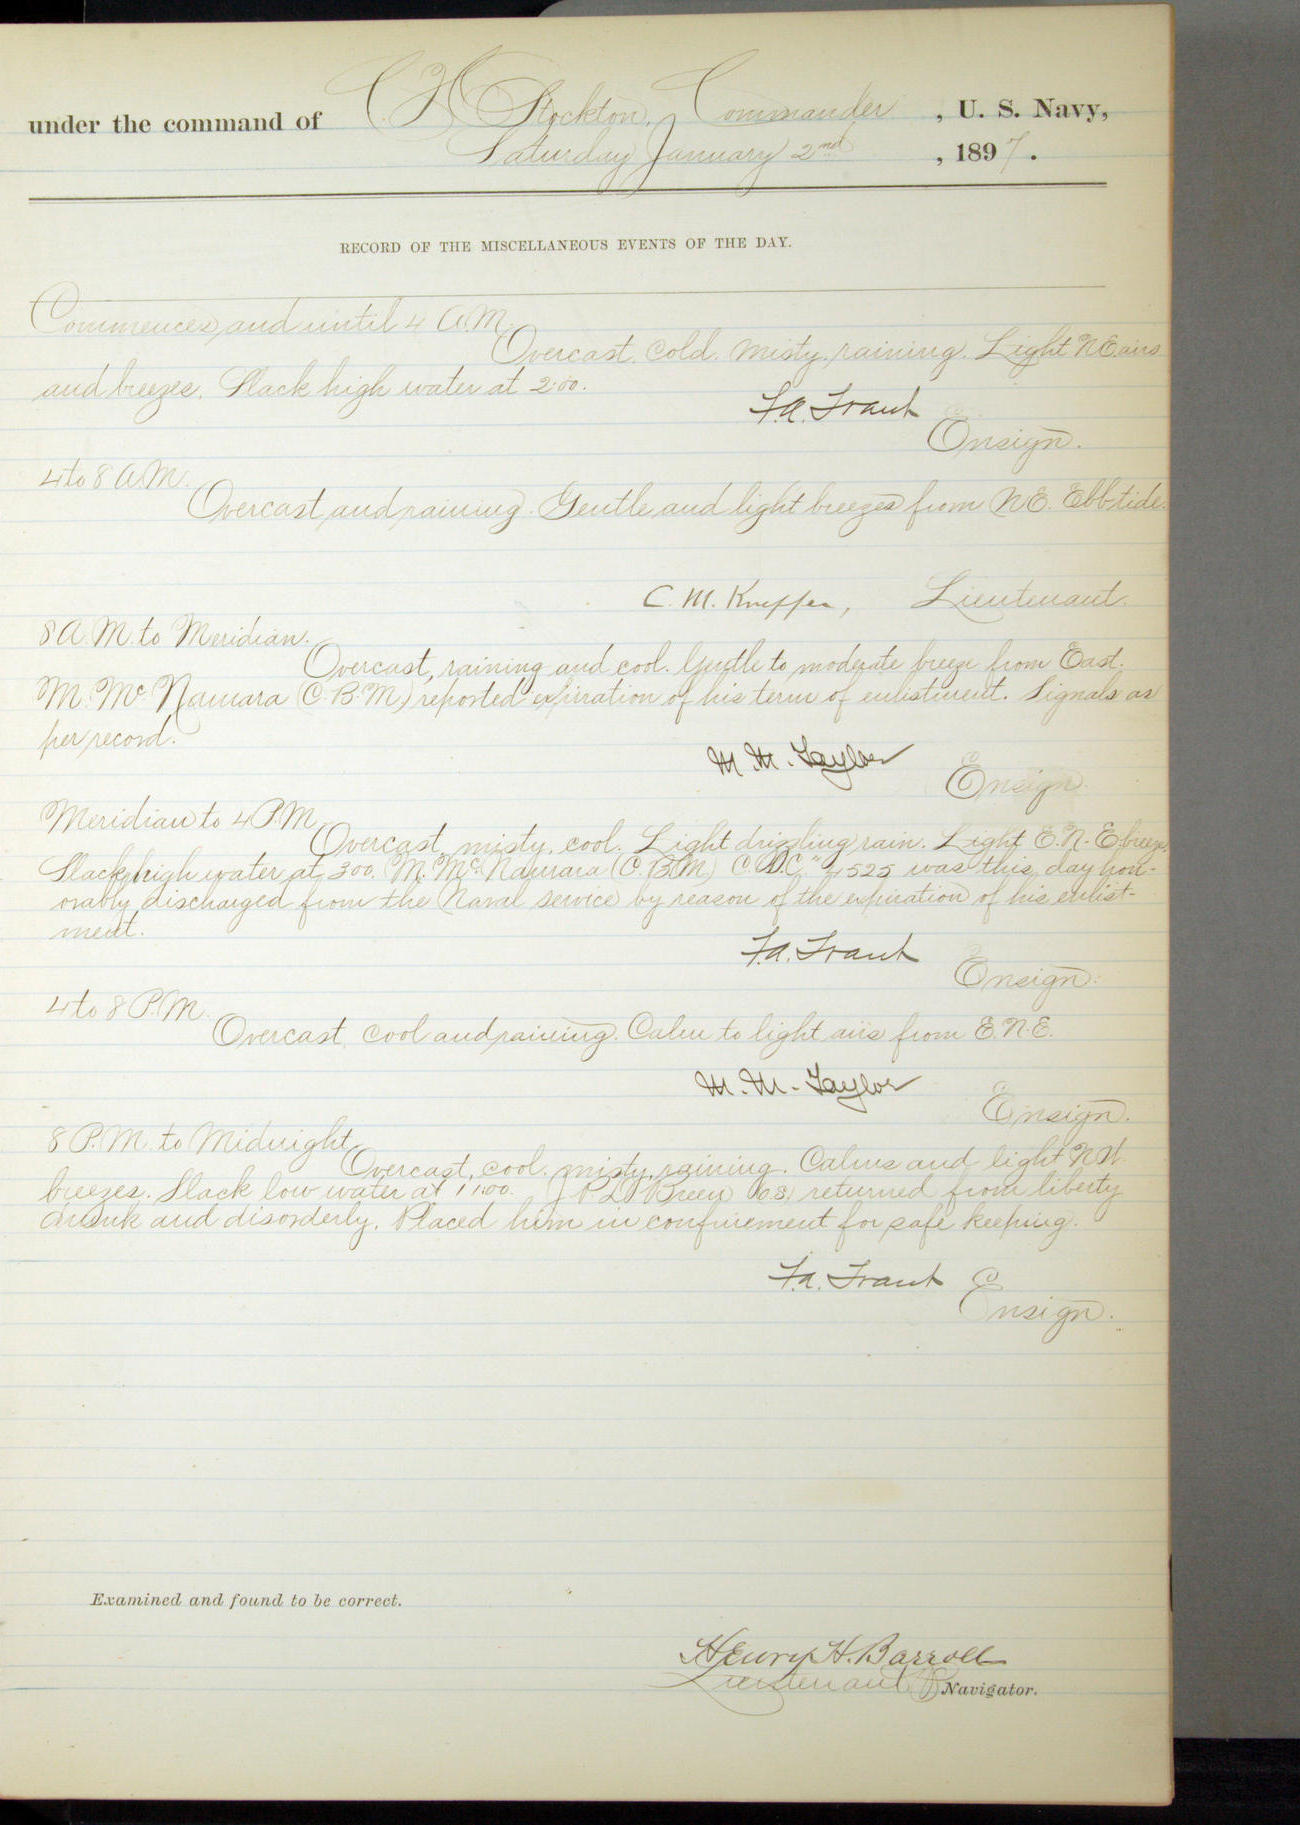 under the command of C. H. Stockton, Commander, U. S. Navy,
Saturday January 2nd, 1897.
RECORD OF THE MISCELLANEOUS EVENTS OF THE DAY.
Commences and until 4 A.M.
Overcast. cold. misty. raining. Light NE airs
and breezes. Slack high water at 2:00.
F.A. Traut
Ensign.
4 to 8 A.M.
Overcast and raining. Gentle and light breezes from NE. Ebb tide.
C. M. Knepper, Lieutenant.
8 A.M. to Meridian.
Overcast, raining and cool. Gentle to moderate breeze from East.
M. Mc Namara (C.B.M.) reported expiration of his term of enlistment. Signals as
per record.
M. M. Taylor
Ensign
Meridian to 4 P.M.
Overcast, misty, cool. Light drizzling rain. Light E.N.E. breeze.
Slack high water at 3:00. M. Mc Namara (C.B.M.) C.S.C. was this day hon-
orably discharged from the Naval service by reason of the expiration of his enlist-
ment.
F.A. Traut
Ensign.
4 to 8 P.M.
Overcast, cool and raining. Calm to light airs from E.N.E.
M. M. Taylor
Ensign.
8 P.M. to Midnight
Overcast, cool. misty, raining. Calms and light
breezes. Slack low water at 11:00. Breen returned from liberty
drunk and disorderly. Placed him in confinement for safe keeping.
F.A. Traut
Ensign.
Examined and found to be correct.
Henry H. Barroll
Lieutenant Navigator.